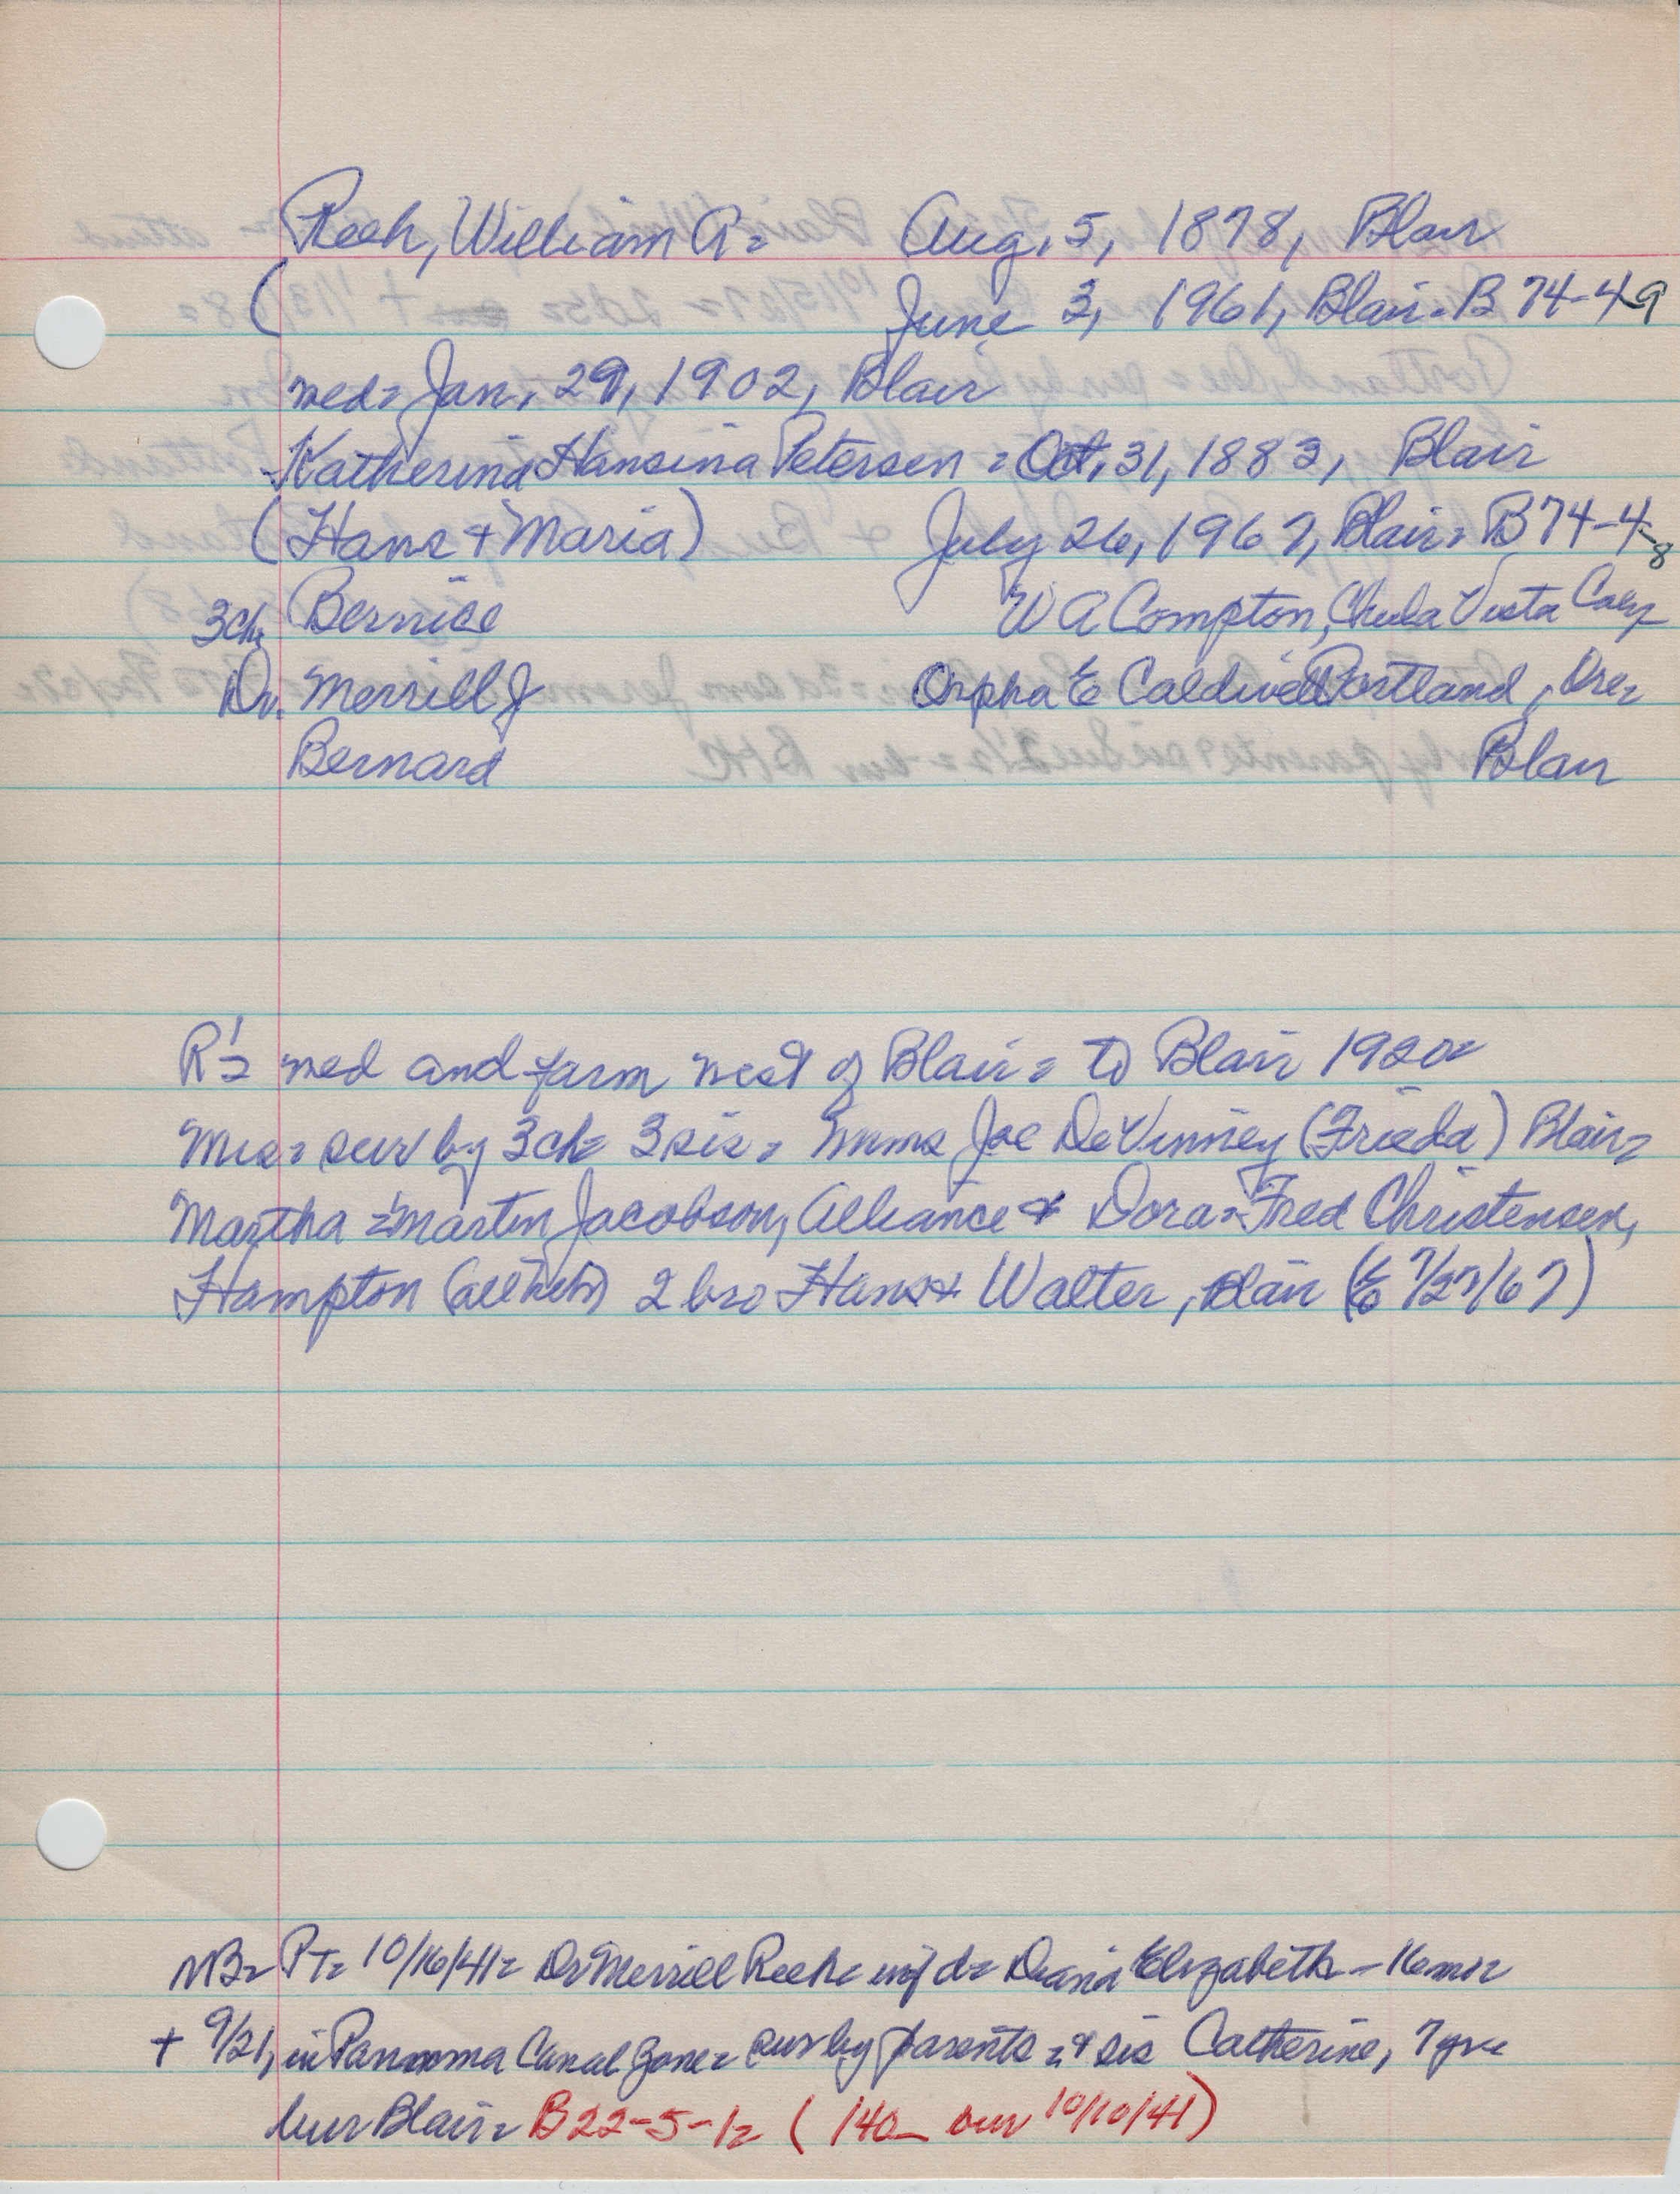 Reeh, William A= Aug, 5, 1878, Blair
( June 3, 1961, Blair= B 74-4-9
med= Jan, 29, 1902, Blair
Katherina Hansina Petersen = Oct, 31, 1883, Blair
(Hans + Maria) July 26, 1967, Blair= B74-4-8
3ch= Bernice W A Compton, Chula Vista Calif
Dr. Merrill J Orpha E Caldwell Portland, Ore=
Bernard Blair
R's= med and farm west of Blair= to Blair 1920=
Mrs= sur by 3ch= 3sis= Mmes Joe DeVinney (Frieda) Blair=
Martha =Martin Jacobson, Alliance & Dora= Fred Christensen,
Hampton 2 bro Hans + Walter, Blair (E 7/27/67)
NB= PT= 10/16/41= Dr Merrill Reeh= inf d= Diana Elizabeth - 16mo=
+ 9/21, in Panama Canal Zone= sur by parents= & sis Catherine, 7yr=
bur Blair= B22-5-1= (140_ bur 10/10/41)